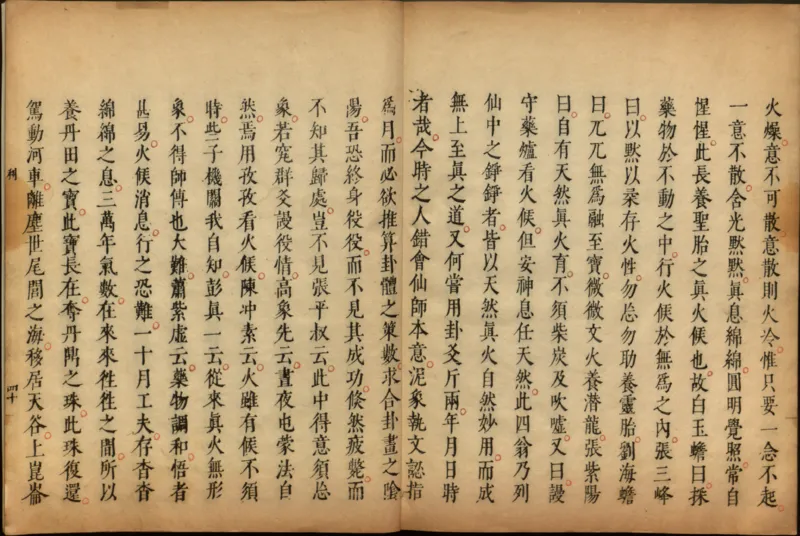 火燥意不可散意散則火冷惟只要一念不起
一意不散含光默默眞息綿綿圓明覺照常自
惺惺此長養聖胎之眞火候也故白玉蟾曰採
藥物於不動之中行火候於無爲之內張三峰
曰以默以柔存火性勿忘勿助養靈胎劉海蟾
曰兀兀無爲融至寶微微文火養潛龍張紫陽
曰自有天然眞火育不須柴炭及吹噓又曰謾
守藥爐看火候但安神息任天然此四翁乃列
仙中之錚錚者皆以天然眞火自然妙用而成
無上至眞之道又何嘗用卦爻斤兩年月日時
者哉今時之人錯會仙師本意泥象執文認指
爲月而必欲推算卦體之策數求合卦畫之陰
陽吾恐終身役役而不見其成功倐然疲斃而
不知其歸處豈不見張平叔云此中得意須忘
象若究群爻謾役情高象先云晝夜屯蒙法自
然焉用孜孜看火候陳冲素云火雖有候不須
時些子機關我自知彭眞一云從來眞火無形
象不得師傳也大難蕭紫虛云藥物調和悟者
甚易火候消息行之恐難一十月工夫存杳杳
綿綿之息三萬年氣數在來來徃徃之間所以
養丹田之寶此寶長在奪丹閑之珠此珠復還
駕動河車離塵世尾閭之海移居天谷上崑崙
利
四十